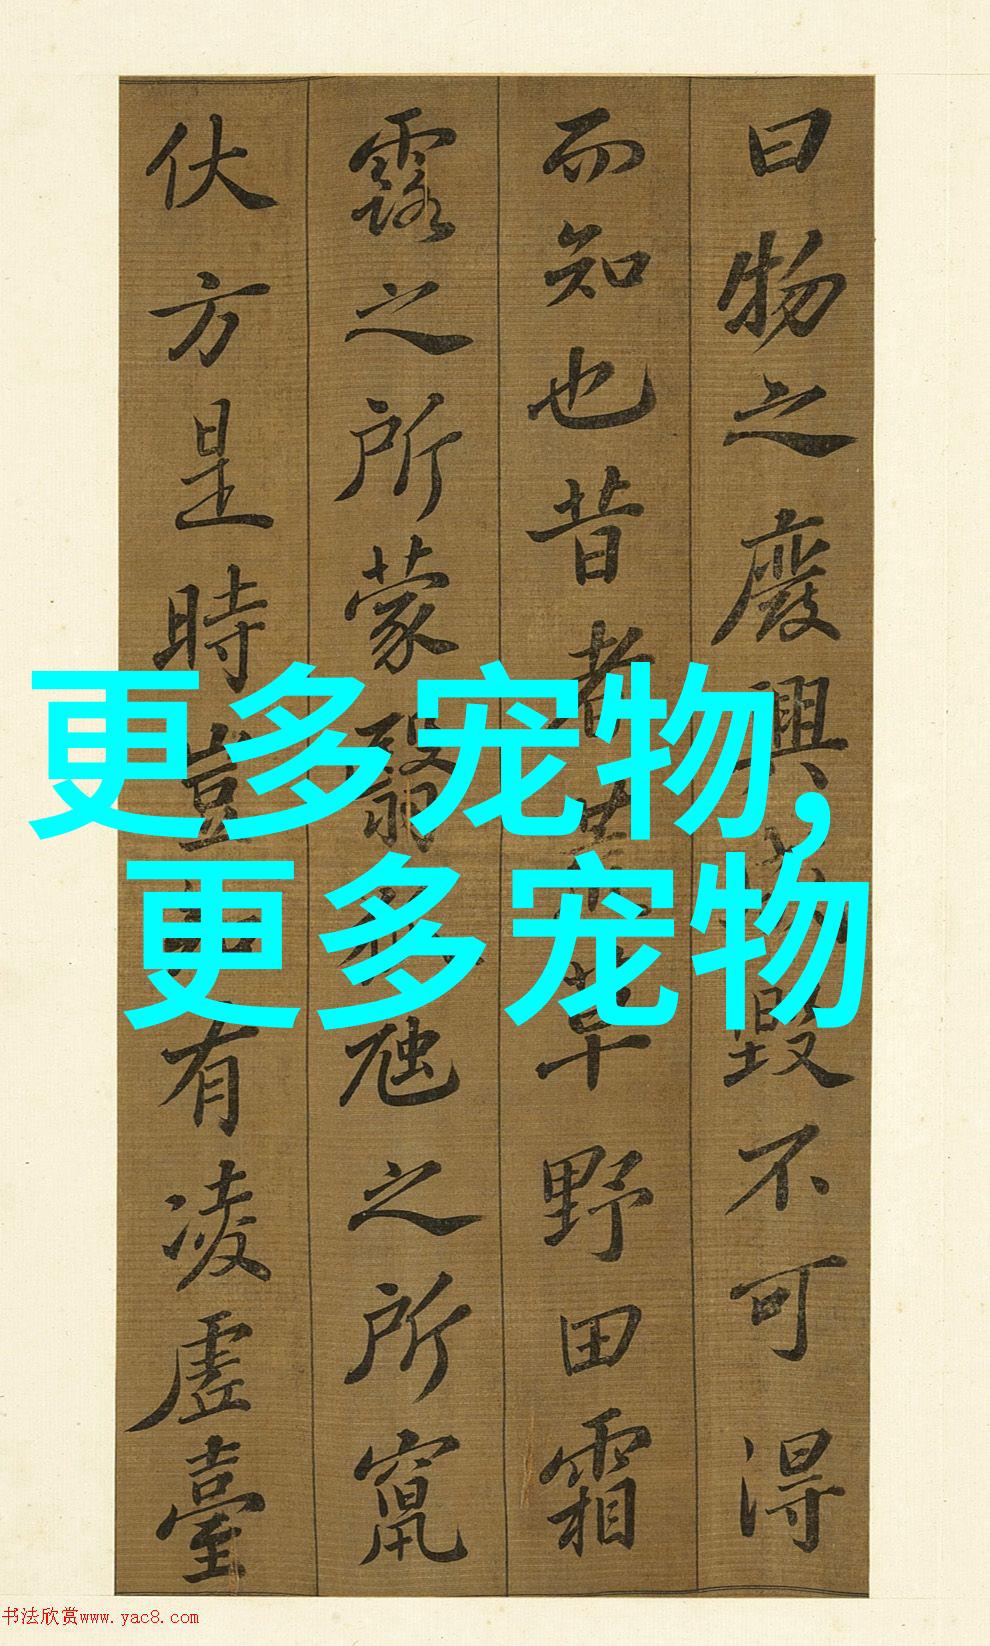 曰物之廢興成毀不可得
而知也昔者荒草野田霜
露之所蒙翳狐虺之所竄
伏方是時豈知有凌虛臺
更多宠物,
更多宠物
书法欣赏www.yac8.com